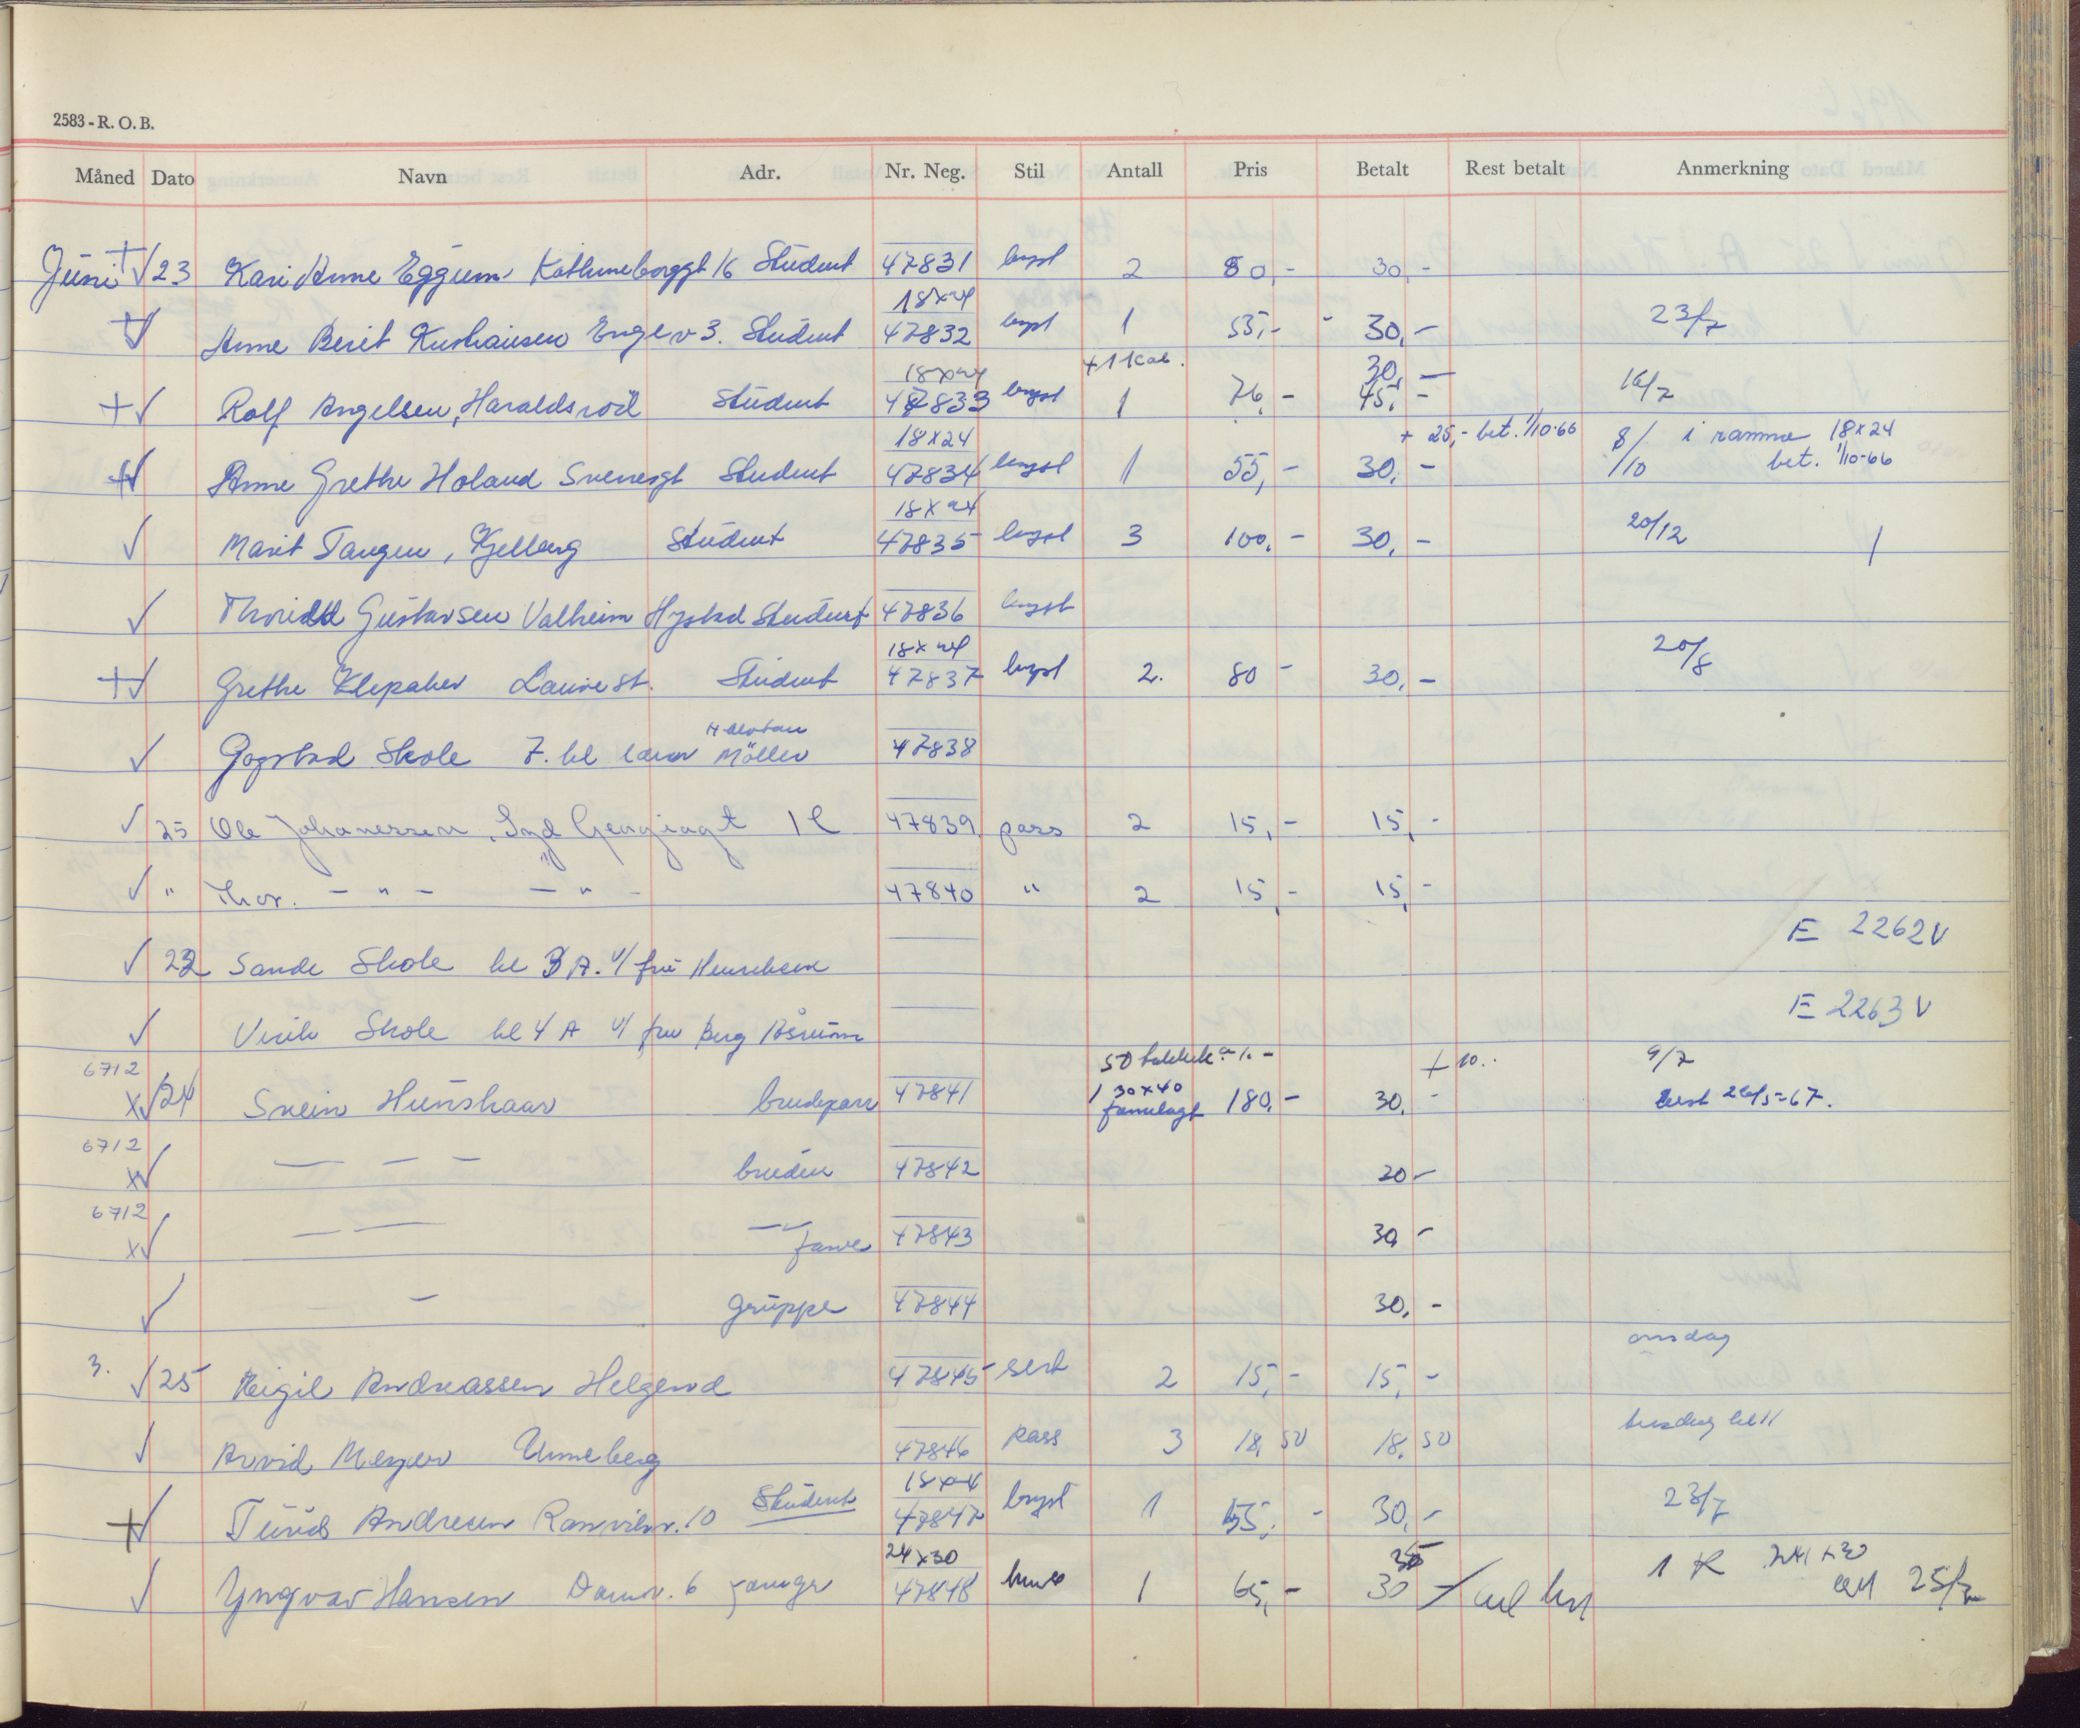 2583 - R. O. B.
Måned Dato Navn Adr. Nr. Neg. Stil Antall Pris Betalt Rest betalt Anmerkning
Juni 23 Kari Anne Eggum 16 Student 47831 bryst 2 80,- 30,-
18x24
Anne Berit Engev 3. Student 47832 bryst 1 55,- 30,- 23/7
18x24 +1 Kab. 30,-
Rolf Angelsen, Haraldsröd Student 47833 bryst 1 76,- 45,- 16/7
18x24 + 25,- bet. 1/10-66 8/ i ramme 18x24
Anne Grethe Holand Sverresgt Student 47834 bryst 1 55,- 30,- 1/10 bet. 1/10-66
18x24
Marit Tangen, Kjelberg Student 47835 bryst 3 100,- 30,- 20/12 1
Gustavsen Valheim Hystad Student 47836 bryst
18x24
Grethe Klepaker Lauvest. Student 47837 bryst 2. 80 - 30,- 20/8
Gogstad Skole 7. kl lærer Möller 47838
25 Ole Johannessen, 47839 pass 2 15,- 15,-
" Thor. - " - - " - 47840 " 2 15,- 15,-
E 2262 V
22 Sande Skole kl 3 A. v/ fru Henriksen
E 2263 V
Skole kl 4 A v/ fru Berg
6712 50 + 10.. 9/7
x 24 Svein Hunskaar brudepar 47841 1 30x40 180,- 30,- 26/5-67.
6712
x — — — bruden 47842 20,-
6712
x — — — " — farve 47843 30,-
— gruppe 47844 30,-
onsdag
3. 25 Eigil Andreassen Helgerød 47845 sert 2 15,- 15,-
tirsdag kl 11
Arvid Meyer Unneberg 47846 pass 3 18,50 18,50
18x24
Turid Andresen Ranvikv. 10 Student 47847 bryst 1 55,- 30,- 23/7
24x30 35 1 K 24x30
Yngvar Hansen 6 47848 1 65,- 30 - 25/7